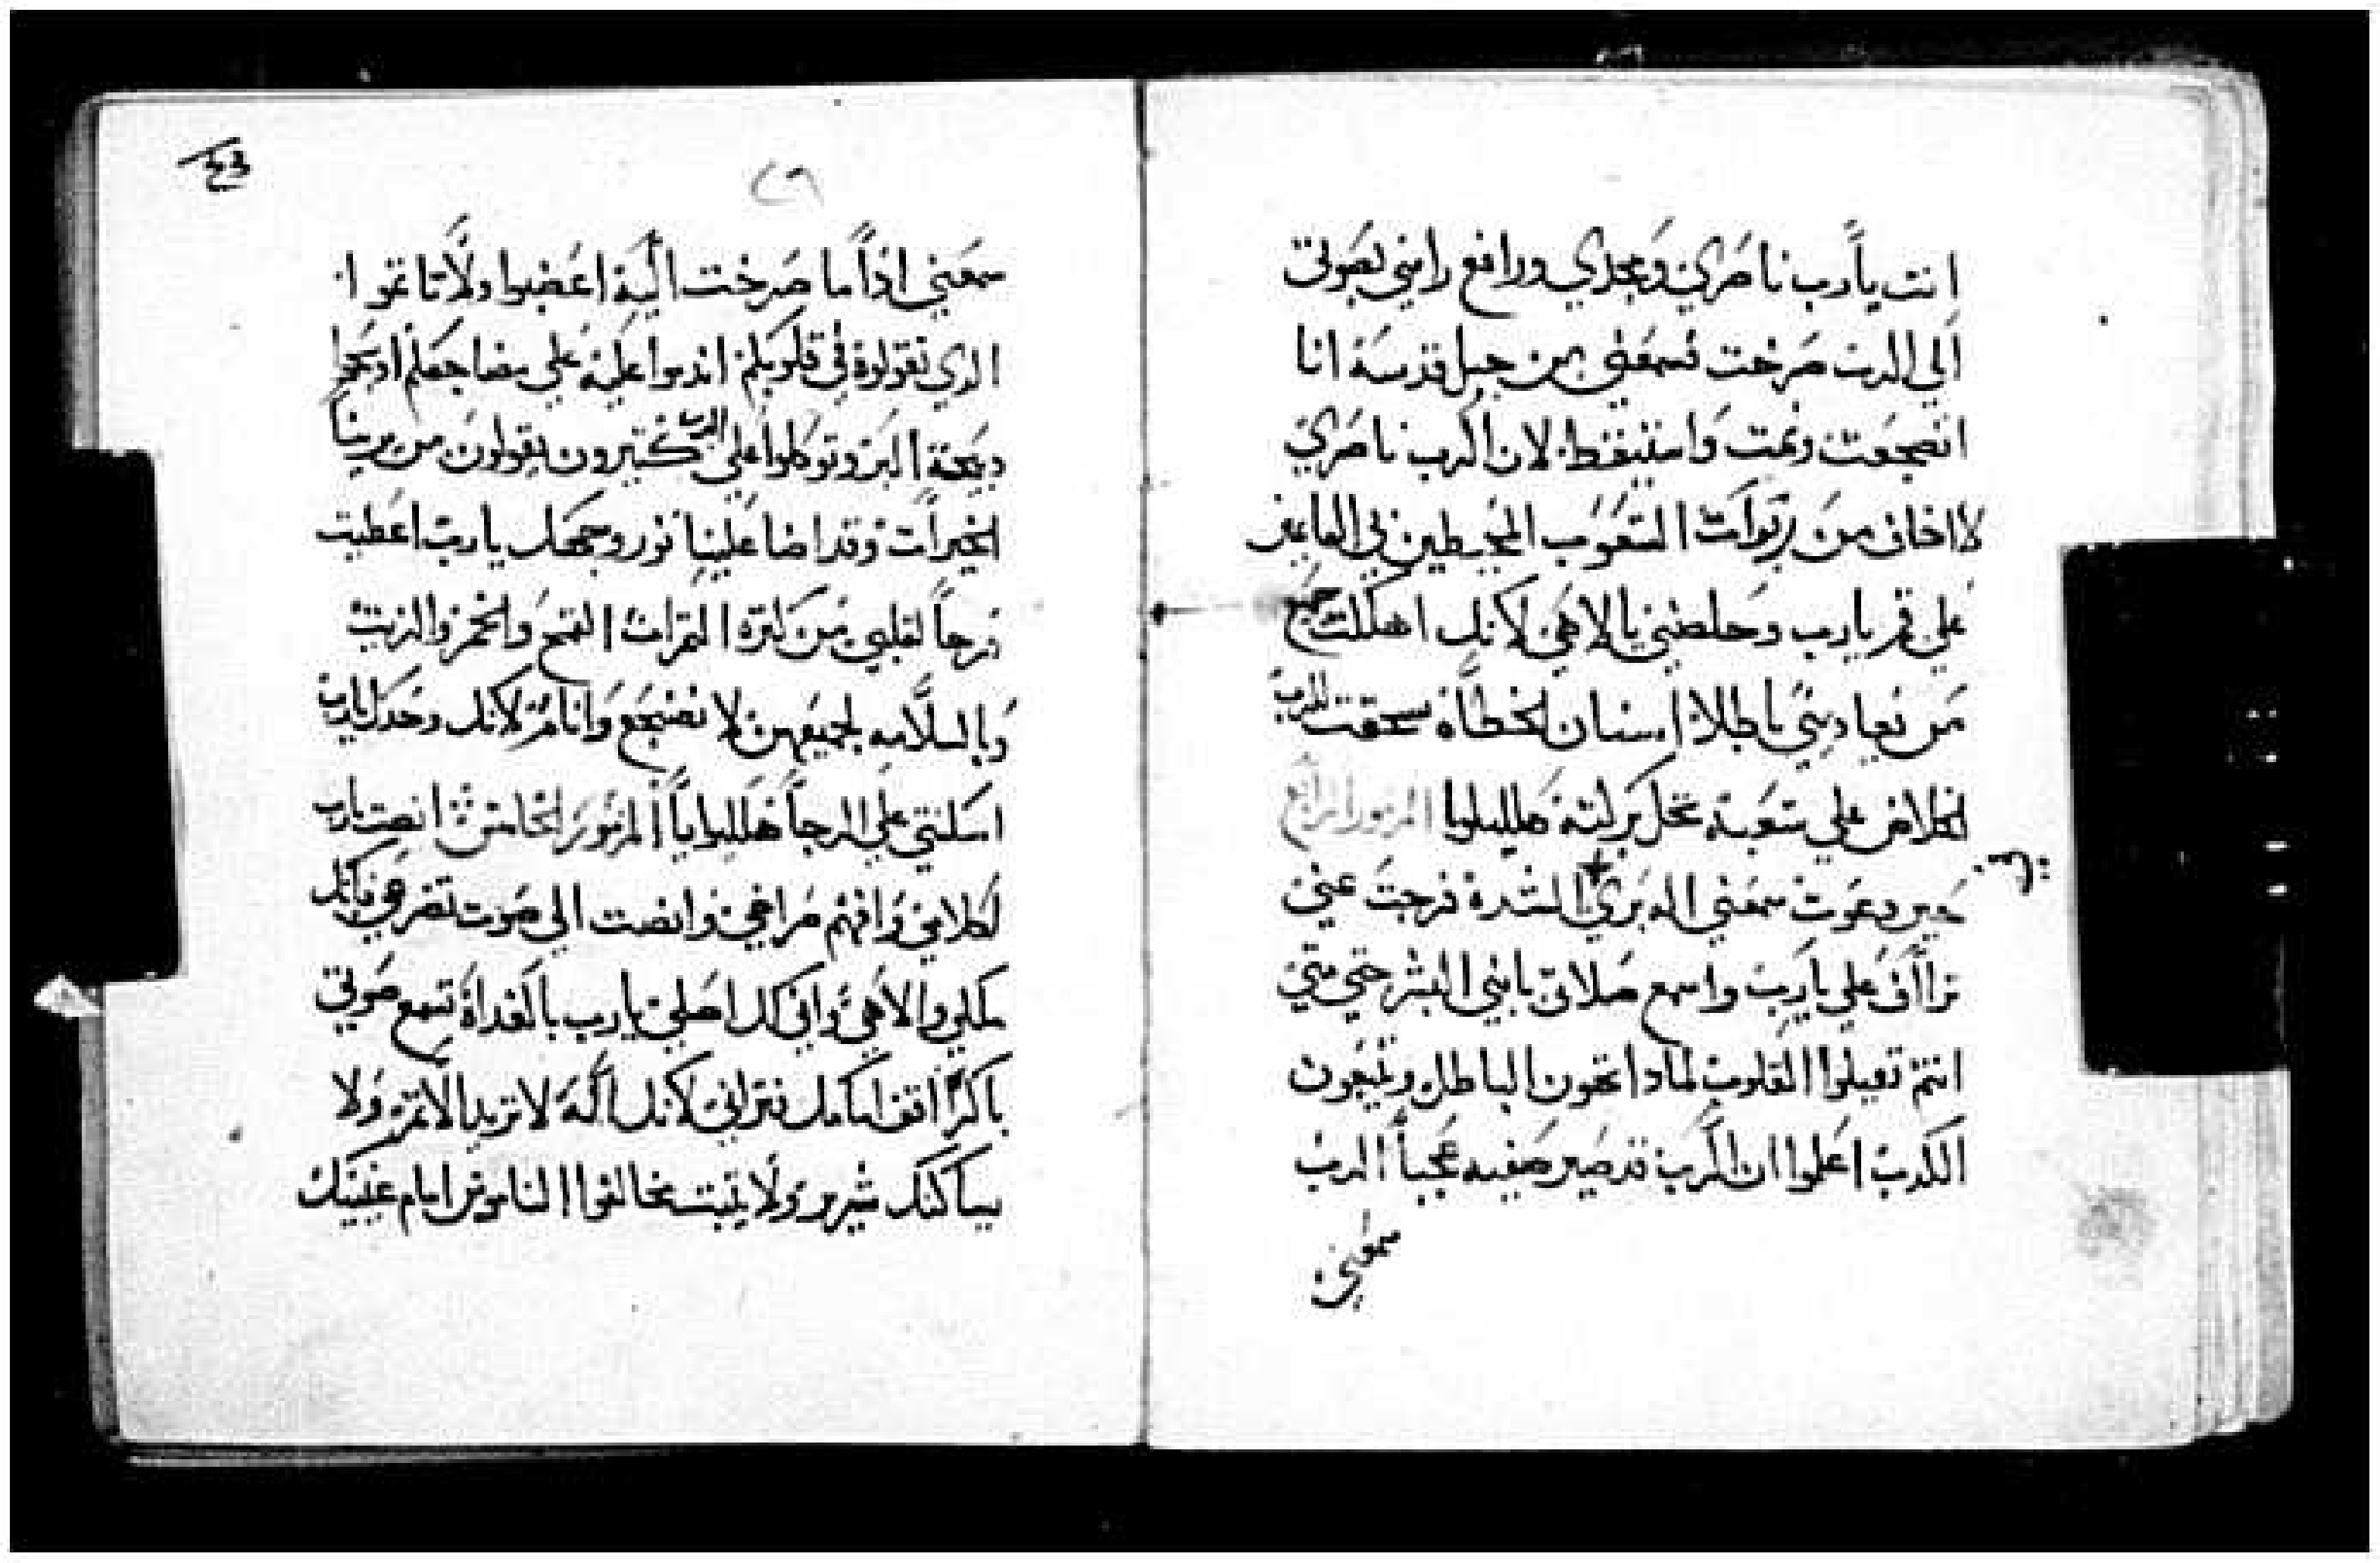 انت يا رب ناصري ومجدي ورافع راسي بصوتي
الي الرب صرخت فسمعني من جبل قدسه انا
اضجعت ونمت واستيقظت لان الرب ناصري
لا اخاف من ربوات الشعوب المحيطين بي القايمين
علي قم يا رب وخلصني يا الاهي لانك اهلكت جميع
من يعاديني باطلا اسنان الخطاه سحقت للرب
الخلاص علي شعبه تحل بركته هلليلويا المزمور الرابع
حين دعوت سمعني اله بري في الشده فرجت عني
تراأف علي يا رب واسمع صلاتي يا بني البشر حتي متي
انتم تقيلوا القلوب لمادا تحبون الباطل وتبتغون
الكدب اعلموا ان الرب قد صير صفيه عجبا الرب
سمعني
٢٦
سمعني اذا ما صرخت اليه اغضبوا ولا تاتموا
الدي تقولوه في قلوبكم اندموا عليه علي مضاجعكم ادبحوا
دبيحة البر وتوكلوا علي الرب كتيرون يقولون من يرينا
الخيرات وقد اضا علينا نور وجهك يا رب اعطيت
فرحا لقلبي من كترة التمرات القمح والخمر والزيت
وبالسلامه لجميعهن لا نضجع وانام لانك وحدك يا رب
اسكنتي علي الرجا هلليلويا المزمور الخامس انصت يا رب
لكلامي وافهم صراخي وانصت الي صوت تضرعي فانك
ملكي والاهي واني لك اصلي يا رب بالغداة تسمع صوتي
باكرا اقف امامك فتراني لانك اله لا تريد الاتم ولا
يساكنك شرير ولا يتبت مخالفوا الناموس امام عينيك